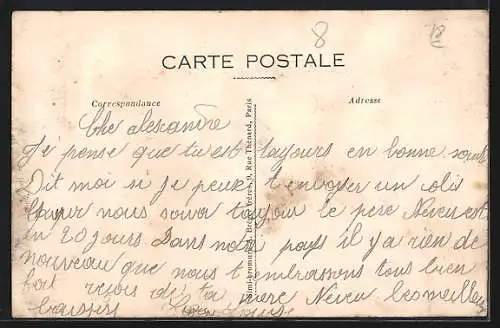 8
CARTE POSTALE
Correspondance
Adresse
Che alexandre
J'ai pense que tu est toujours en bonne santé
Dit moi si je peux t envoyer un colis
pour nous savoir toujour le pere Neveu est
en 20 jours Dans notre pays il y a rien de
nouveau que nous t embrassons tous bien
fort reçois de ta mere Neveu les meilleu
baisers
Bréger frères, 9, Rue Thénard, Paris